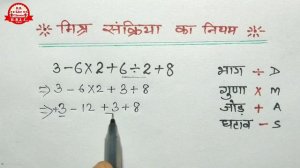 * मिश्र संक्रिया का नियम *
3-6×2+6÷2+8
⇒ 3-6×2+3+8
⇒ +3-12+3+8
भाग ÷ D
गुणा × M
जोड़ + A
घटाव - S